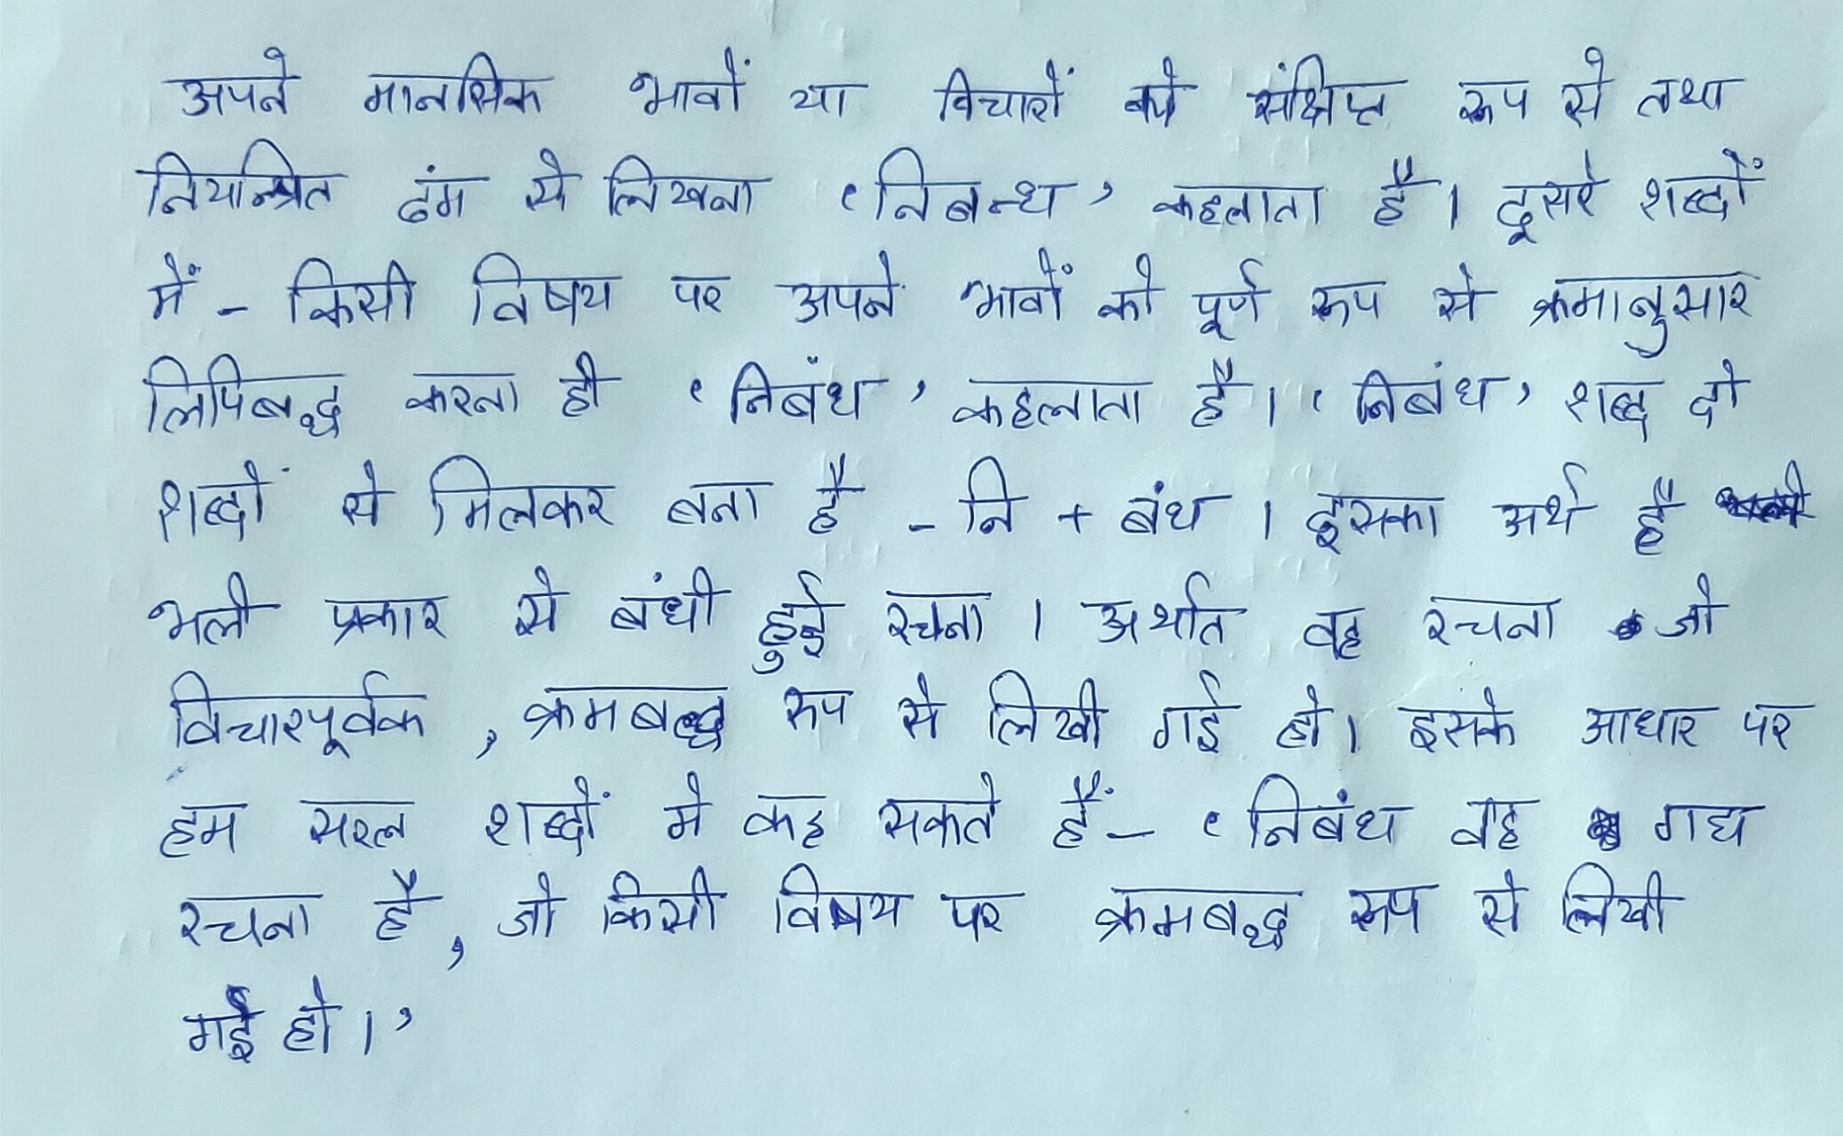 अपने मानसिक भावों या विचारों को संक्षिप्त रूप से तथा
नियन्त्रित ढंग से लिखना 'निबन्ध' कहलाता है। दूसरे शब्दों
में - किसी विषय पर अपने भावों को पूर्ण रूप से क्रमानुसार
लिपिबद्ध करना ही 'निबंध' कहलाता है। 'निबंध' शब्द दो
शब्दों से मिलकर बना है - नि + बंध । इसका अर्थ है
भली प्रकार से बंधी हुई रचना । अर्थात वह रचना जो
विचारपूर्वक , क्रमबद्ध रूप से लिखी गई हो। इसके आधार पर
हम सरल शब्दों मे कह सकते हैं - 'निबंध वह गद्य
रचना है, जो किसी विषय पर क्रमबद्ध रूप से लिखी
गई हो।'